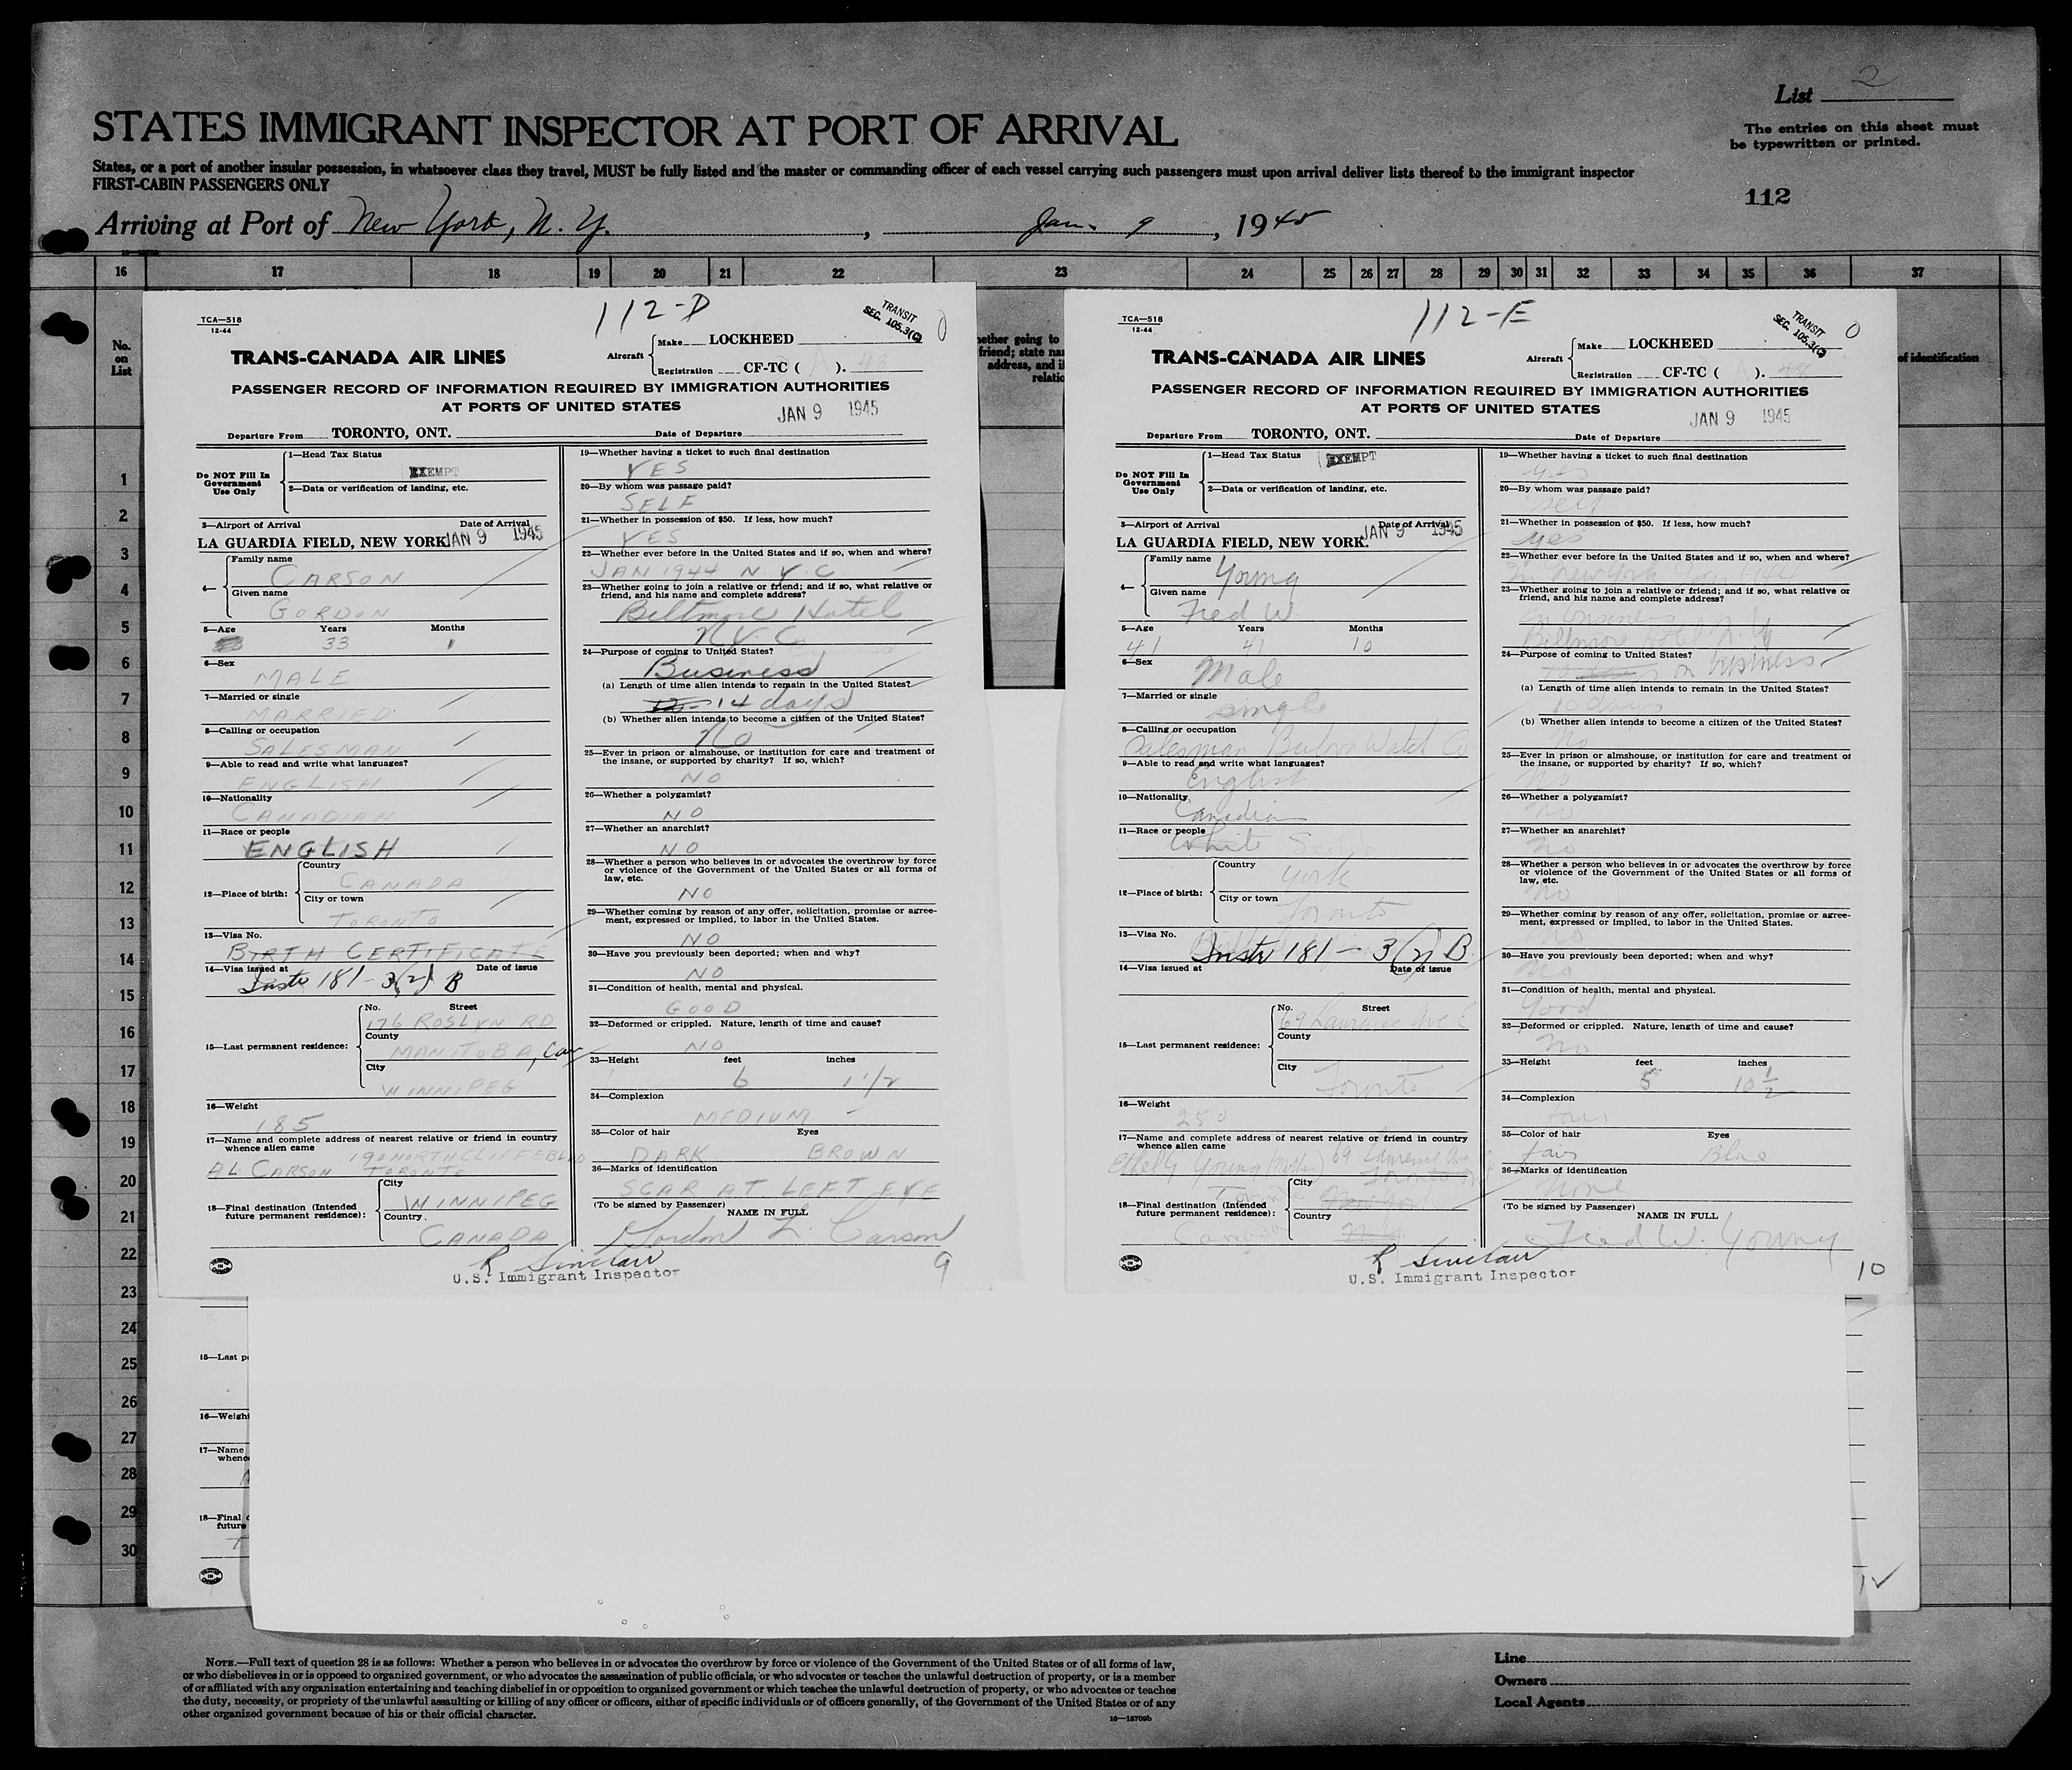 List 2
STATES IMMIGRANT INSPECTOR AT PORT OF ARRIVAL
The entries on this sheet must
be typewritten or printed.
States, or a port of another insular possession, in whatsoever class they travel, MUST be fully listed and the master or commanding officer of each vessel carrying such passengers must upon arrival deliver lists thereof to the immigrant inspector
FIRST-CABIN PASSENGERS ONLY
112
Arriving at Port of New York, N. Y., Jan. 9, 1945
16 17 18 19 20 21 22 23 24 25 26 27 28 29 30 31 32 33 34 35 36 37
No.
on
List
1
2
3
4
5
6
7
8
9
10
11
12
13
14
15
16
17
18
19
20
21
22
23
24
25
26
27
28
29
30
112-D
TCA—518
12-44
TRANSIT
SEC. 105.3(C)
TRANS-CANADA AIR LINES
Aircraft
Make LOCKHEED
Registration CF-TC ( ). 48
PASSENGER RECORD OF INFORMATION REQUIRED BY IMMIGRATION AUTHORITIES
AT PORTS OF UNITED STATES
JAN 9 1945
Departure From TORONTO, ONT. Date of Departure
Do NOT Fill In
Government
Use Only
1—Head Tax Status
EXEMPT
2—Data or verification of landing, etc.
3—Airport of Arrival Date of Arrival
LA GUARDIA FIELD, NEW YORK. JAN 9 1945
4—
Family name
CARSON
Given name
GORDON
5—Age Years Months
33 1
6—Sex
MALE
7—Married or single
MARRIED
8—Calling or occupation
SALESMAN
9—Able to read and write what languages?
ENGLISH
10—Nationality
CANADIAN
11—Race or people
ENGLISH
12—Place of birth:
Country
CANADA
City or town
TORONTO
13—Visa No.
BIRTH CERTIFICATE
14—Visa issued at Date of issue
Instr 181-3(2) B
15—Last permanent residence:
No. Street
176 ROSLYN RD
County
MANITOBA, Can
City
WINNIPEG
16—Weight
185
17—Name and complete address of nearest relative or friend in country
whence alien came
190 NORTHCLIFFE BLVD
AL CARSON TORONTO
18—Final destination (Intended
future permanent residence):
City
WINNIPEG
Country.
CANADA
19—Whether having a ticket to such final destination
YES
20—By whom was passage paid?
SELF
21—Whether in possession of $50. If less, how much?
YES
22—Whether ever before in the United States and if so, when and where?
JAN 1944 N.Y.C.
23—Whether going to join a relative or friend; and if so, what relative or
friend, and his name and complete address?
Biltmore Hotel
N.Y.C.
24—Purpose of coming to United States?
Business
(a) Length of time alien intends to remain in the United States?
14 days
(b) Whether alien intends to become a citizen of the United States?
No
25—Ever in prison or almshouse, or institution for care and treatment of
the insane, or supported by charity? If so, which?
NO
26—Whether a polygamist?
NO
27—Whether an anarchist?
NO
28—Whether a person who believes in or advocates the overthrow by force
or violence of the Government of the United States or all forms of
law, etc.
NO
29—Whether coming by reason of any offer, solicitation, promise or agree-
ment, expressed or implied, to labor in the United States.
NO
30—Have you previously been deported; when and why?
NO
31—Condition of health, mental and physical.
GOOD
32—Deformed or crippled. Nature, length of time and cause?
NO
33—Height feet inches
6 1 1/2
34—Complexion
MEDIUM
35—Color of hair Eyes
DARK BROWN
36—Marks of identification
SCAR AT LEFT EYE
(To be signed by Passenger)
NAME IN FULL
Gordon L Carson
R Sinclair
U.S. Immigrant Inspector
9
ether going to
friend; state na
address, and i
relati
of identification
112-E
TCA—518
12-44
TRANSIT
SEC. 105.3(C)
TRANS-CANADA AIR LINES
Aircraft
Make LOCKHEED
Registration CF-TC ( ). 48
PASSENGER RECORD OF INFORMATION REQUIRED BY IMMIGRATION AUTHORITIES
AT PORTS OF UNITED STATES
JAN 9 1945
Departure From TORONTO, ONT. Date of Departure
Do NOT Fill In
Government
Use Only
1—Head Tax Status
EXEMPT
2—Data or verification of landing, etc.
3—Airport of Arrival Date of Arrival
LA GUARDIA FIELD, NEW YORK. JAN 9 1945
4—
Family name
Young
Given name
Fred W.
5—Age Years Months
41 41 10
6—Sex
Male
7—Married or single
single
8—Calling or occupation
Salesman Bulova Watch Co
9—Able to read and write what languages?
English
10—Nationality
Canadian
11—Race or people
White
12—Place of birth:
Country
York
City or town
Toronto
13—Visa No.
Instr 181-3(2) B
14—Visa issued at Date of issue
15—Last permanent residence:
No. Street
69 Lawrence Ave E
County
City
Toronto
16—Weight
250
17—Name and complete address of nearest relative or friend in country
whence alien came
Young (Mother) 69 Lawrence Ave
Toronto
18—Final destination (Intended
future permanent residence):
City
Toronto New York
Country
Canada N.Y.
19—Whether having a ticket to such final destination
yes
20—By whom was passage paid?
self
21—Whether in possession of $50. If less, how much?
yes
22—Whether ever before in the United States and if so, when and where?
New York 1944
23—Whether going to join a relative or friend; and if so, what relative or
friend, and his name and complete address?
Biltmore Hotel N.Y.
24—Purpose of coming to United States?
on business
(a) Length of time alien intends to remain in the United States?
10 days
(b) Whether alien intends to become a citizen of the United States?
No
25—Ever in prison or almshouse, or institution for care and treatment of
the insane, or supported by charity? If so, which?
No
26—Whether a polygamist?
no
27—Whether an anarchist?
no
28—Whether a person who believes in or advocates the overthrow by force
or violence of the Government of the United States or all forms of
law, etc.
no
29—Whether coming by reason of any offer, solicitation, promise or agree-
ment, expressed or implied, to labor in the United States.
no
30—Have you previously been deported; when and why?
no
31—Condition of health, mental and physical.
good
32—Deformed or crippled. Nature, length of time and cause?
no
33—Height feet inches
5 10 1/2
34—Complexion
fair
35—Color of hair Eyes
fair Blue
36—Marks of identification
none
(To be signed by Passenger)
NAME IN FULL
Fred W. Young
R Sinclair
U.S. Immigrant Inspector
10
15—Last p
16—Weight
17—Name
whence
18—Final
future
12
NOTE.—Full text of question 28 is as follows: Whether a person who believes in or advocates the overthrow by force or violence of the Government of the United States or of all forms of law,
or who disbelieves in or is opposed to organized government, or who advocates the assassination of public officials, or who advocates or teaches the unlawful destruction of property, or is a member
of or affiliated with any organization entertaining and teaching disbelief in or opposition to organized government or which teaches the unlawful destruction of property, or who advocates or teaches
the duty, necessity, or propriety of the unlawful assaulting or killing of any officer or officers, either of specific individuals or of officers generally, of the Government of the United States or of any
other organized government because of his or their official character.
16—18709b
Line
Owners
Local Agents